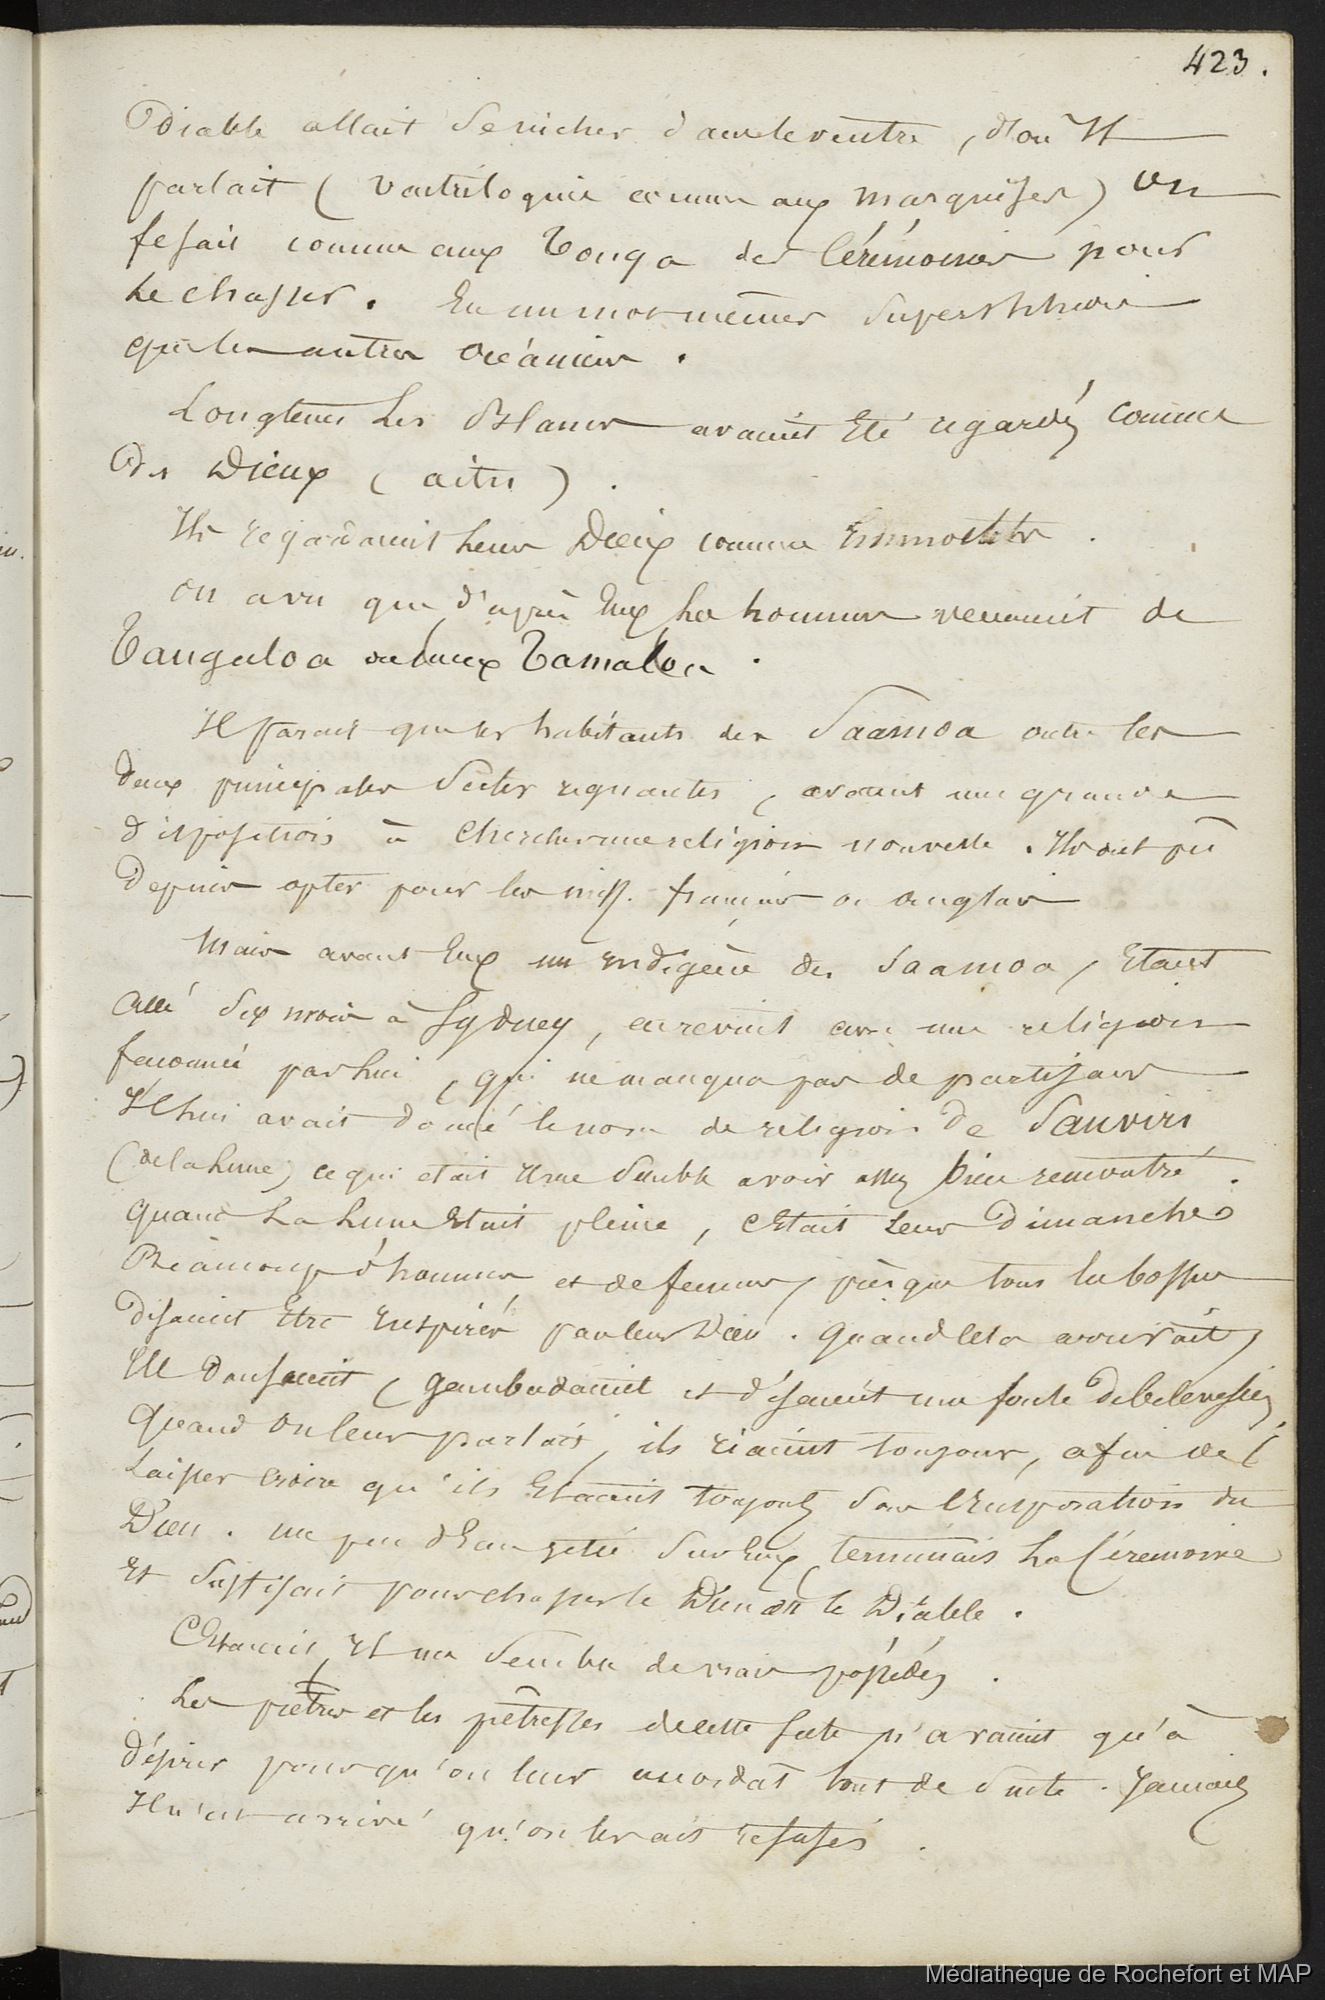 423.
Diable allait se nicher dans le ventre, d'où Il
parlait (ventriloquie comme aux marquises) on
fesait comme aux Tonga des Cérémonies pour
le chasser. En un mot mêmes superstitions
que les autres océaniens.
Longtems Les Blancs avaient Eté regardés comme
Des Dieux (aitu).
Ils regardaient leurs Dieux comme Immortels.
on a vu que d'après Eux Les hommes venaient de
Tangaloa ou Tamaloa.
Il parait que les habitants des Saamoa outre les
deux principales Sectes regnantes, avaient une grande
disposition à chercher une religion nouvelle. Ils ont pû
Depuis opter pour les miss. français ou anglais
Mais avant Eux un indigène des Saamoa, Etant
allé Six mois à Sydney, en revint avec une religion
par lui, qui ne manqua pas de partisans
Il lui avait donné le nom de religion de Sauviri
(de la Lune) ce qui était Il me semble avoir assez bien rencontré.
Quand La Lune Etait pleine, C'Etait leur Dimanche
Beaucoup d'hommes et de femmes, presque tous les bossus
disaient Etre Inspirés par leur Dieu. Quand cela arrivait,
Ils Dansaient, Gambadaient et disaient une foule de
Quand on leur parlait, ils riaient toujours, afin de
Laisser croire qu'ils Etaient toujours sous l'Inspiration du
Dieu. un peu d'Eau jetée sur Eux, terminait La Cérémonie
Et suffisait pour chasser le Dieu ou le Diable.
C'Etaient, Il me semble de vrais possédés.
Les prêtres et les prêtresses de cette secte n'avaient qu'à
désirer pour qu'on leur accordât tout de suite. Jamais
Il n'est arrivé qu'on les ait refusés.
Médiathèque de Rochefort et MAP